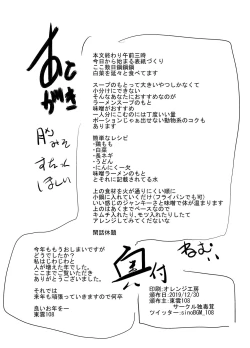 あとがき
本文終わり午前三時
今日から始まる表紙づくり
ここ数日鍋鍋鍋
白菜を延々と食べてます
スープのもとって大きいやつしかなくて
小分けにできない
そんなあなたにおすすめなのが
ラーメンスープのもと
味噌がおすすめ
一人分にこむのには丁度いい量
ポーションじゃぁ出せない動物系のコクも
あります
簡単なレシピ
・鶏もも
・白菜
・長ネギ
・うどん
・にんにく一玉
味噌ラーメンのもと
とそれに記載されてる水
上の食材を火が通りにくい順に
小鍋に入れていくだけ(フライパンでも可)
いい感じのジャンキーさと味噌で体が温まります
上のはあくまでベースなので
キムチ入れたり、モツ入れたりしてた
アレンジしてみてくださいな
閑話休題
今年ももうおしまいですが
どうでしたか?
私はじわじわと
人が増えた年でした。
ここまでご覧いただき
ありがとうございました。
それでは
来年も頑張っていきますので何卒
良いお年を…
東雲108
奥付
ねむい
印刷:オレンジ工房
頒布日:2019/12/30
頒布主:東雲108
サークル独毒茸
ツイッター:sinoBGM_108